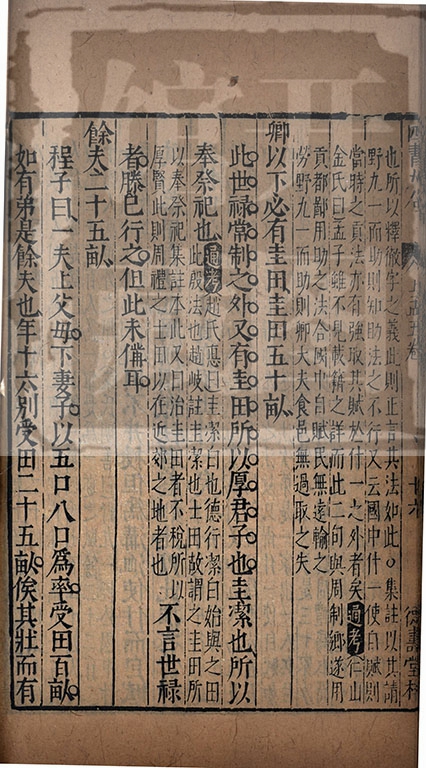 也所以釋徹字之義此則正言其法如此○集註以其請
野九一而助則知助法之不行又云國中什一使自賦則
當時之貢法亦有強取其賦於什一之外者矣通考仁山
金氏曰孟子雖不見載籍之詳而此二句與周制鄉遂用
貢都鄙用助之法合國中自賦民無遠輸之
勞野九一而助則卿大夫食邑無過取之失
卿以下必有圭田圭田五十畝
此世禄常制之外又有圭田所以厚君子也圭潔也所以
奉祭祀也通考趙氏惪曰圭潔白也德行潔白始與之田
此殷法也趙岐註圭潔也士田故謂之圭田所
以奉祭祀集註本此又曰治圭田者不稅所以
厚賢此則周禮之士田以在近郊之地者也
不言世禄
者滕已行之但此未備耳
餘夫二十五畝
程子曰一夫上父母下妻子以五口八口爲率受田百畝
如有弟是餘夫也年十六別受田二十五畝俟其壯而有
德壽堂梓